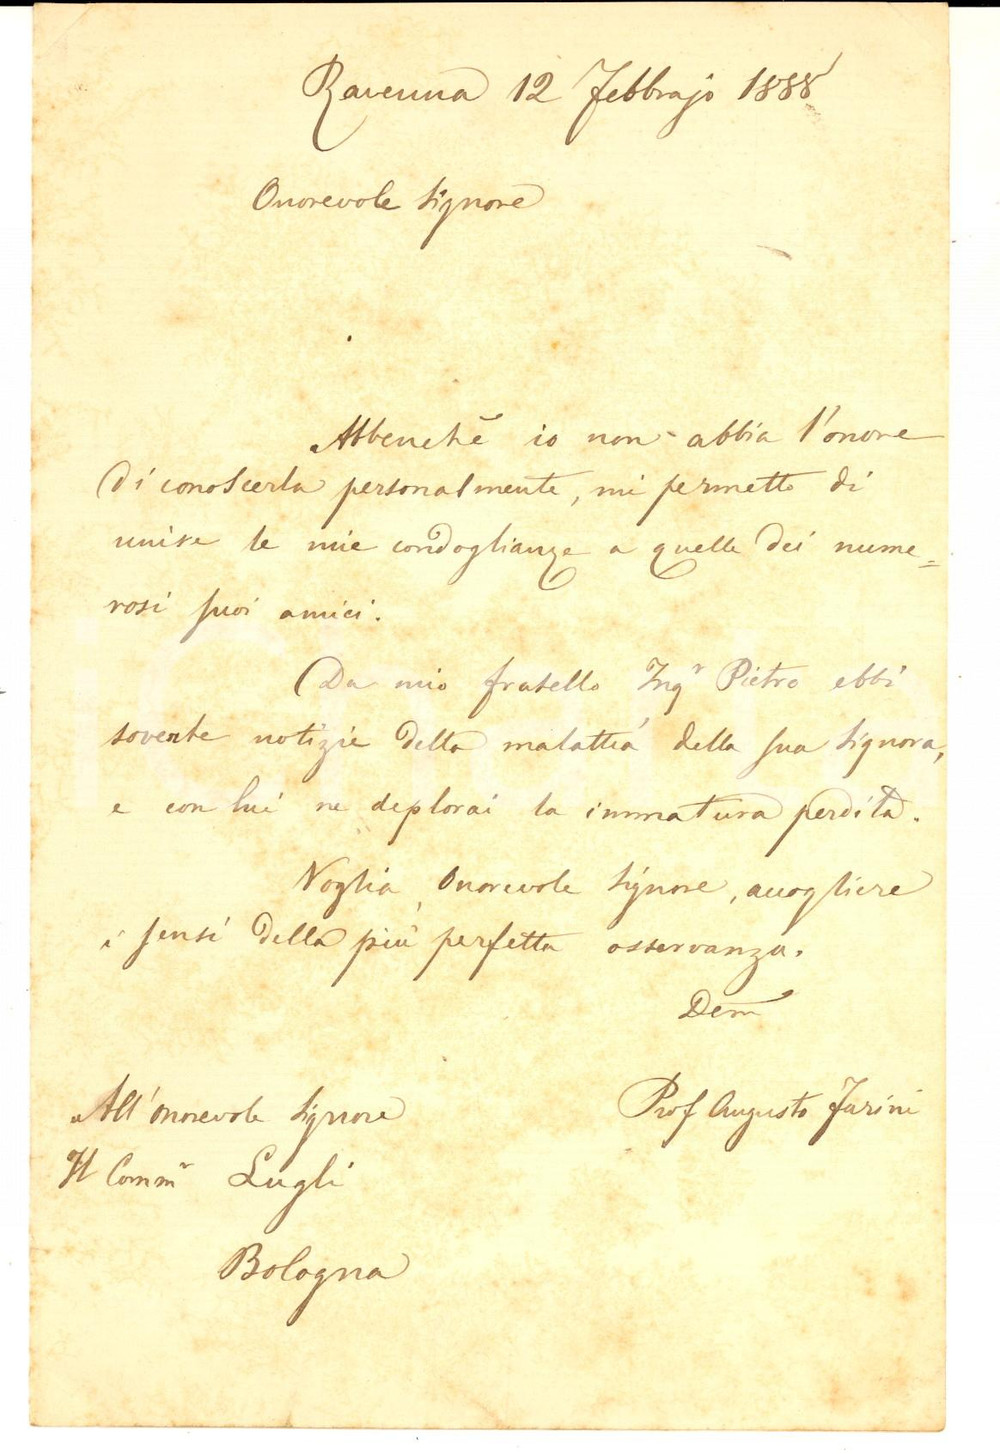 Ravenna 12 Febbrajo 1888
Onorevole Signore
Abbenchè io non abbia l'onore
di conoscerla personalmente, mi permetto di
unire le mie condoglianze a quelle dei nume=
rosi suoi amici.
Da mio fratello Ingr Pietro ebbi
sovente notizie della malattia della sua Signora,
e con lui ne deplorai la immatura perdita.
Voglia, Onorevole Signore, accogliere
i sensi della più perfetta osservanza.
Dem
Prof Augusto Farini
All'onorevole Signore
Il Commr Lugli
Bologna